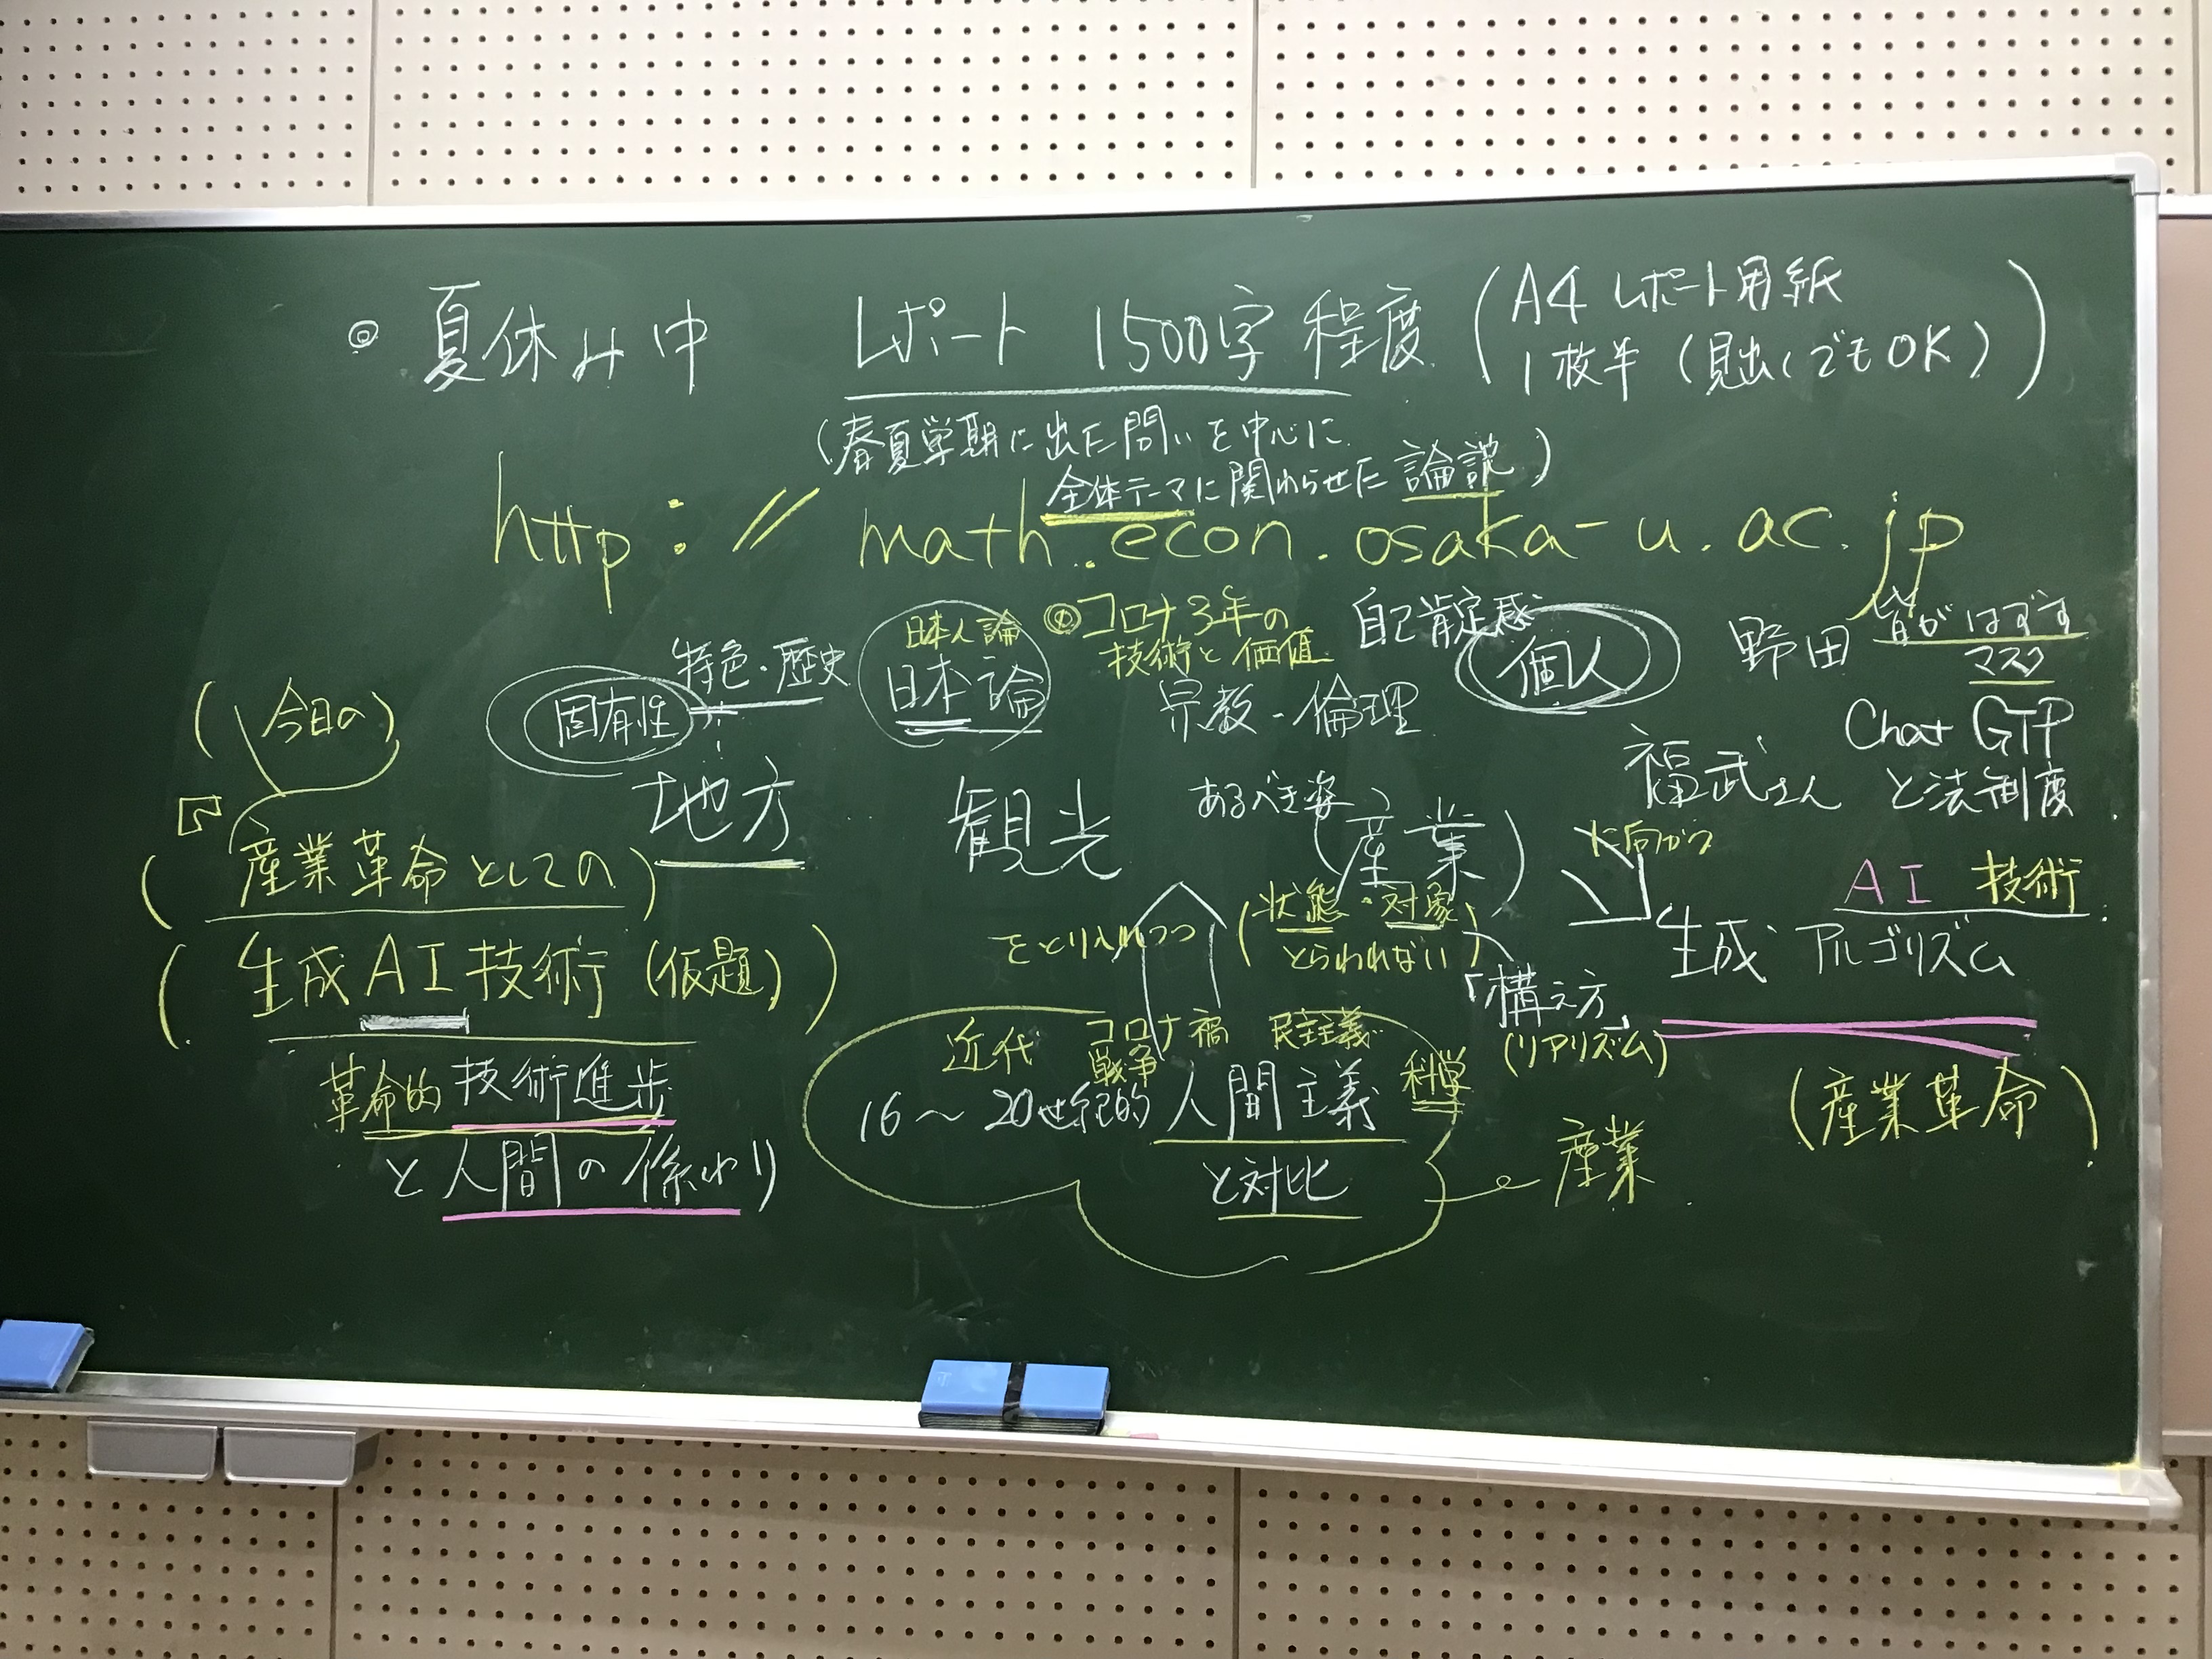 ◎ 夏休み中 レポート 1500字 程度 (A4 レポート用紙
1枚半 (見出しでもOK))
(春夏学期に出た問いを中心に
全体テーマに関わらせた 論説)
http://math.econ.osaka-u.ac.jp
日本人論
日本論
◎コロナ3年の
技術と価値
宗教・倫理
自己肯定感
個人
野田
皆がはずす
マスク
特色・歴史
固有性
地方
(今日の)
観光
あるべき姿
(産業)
福武さん
Chat GTP
と法制度
に向かう
AI 技術
生成 アルゴリズム
(産業革命)
(産業革命としての)
(生成AI技術 (仮題))
革命的 技術進歩
と人間の係わり
をとり入れつつ
(状態・対象)
とらわれない
「構え方」
(リアリズム)
近代 コロナ禍 民主主義
戦争
16〜20世紀的 人間主義 科学
と対比
産業